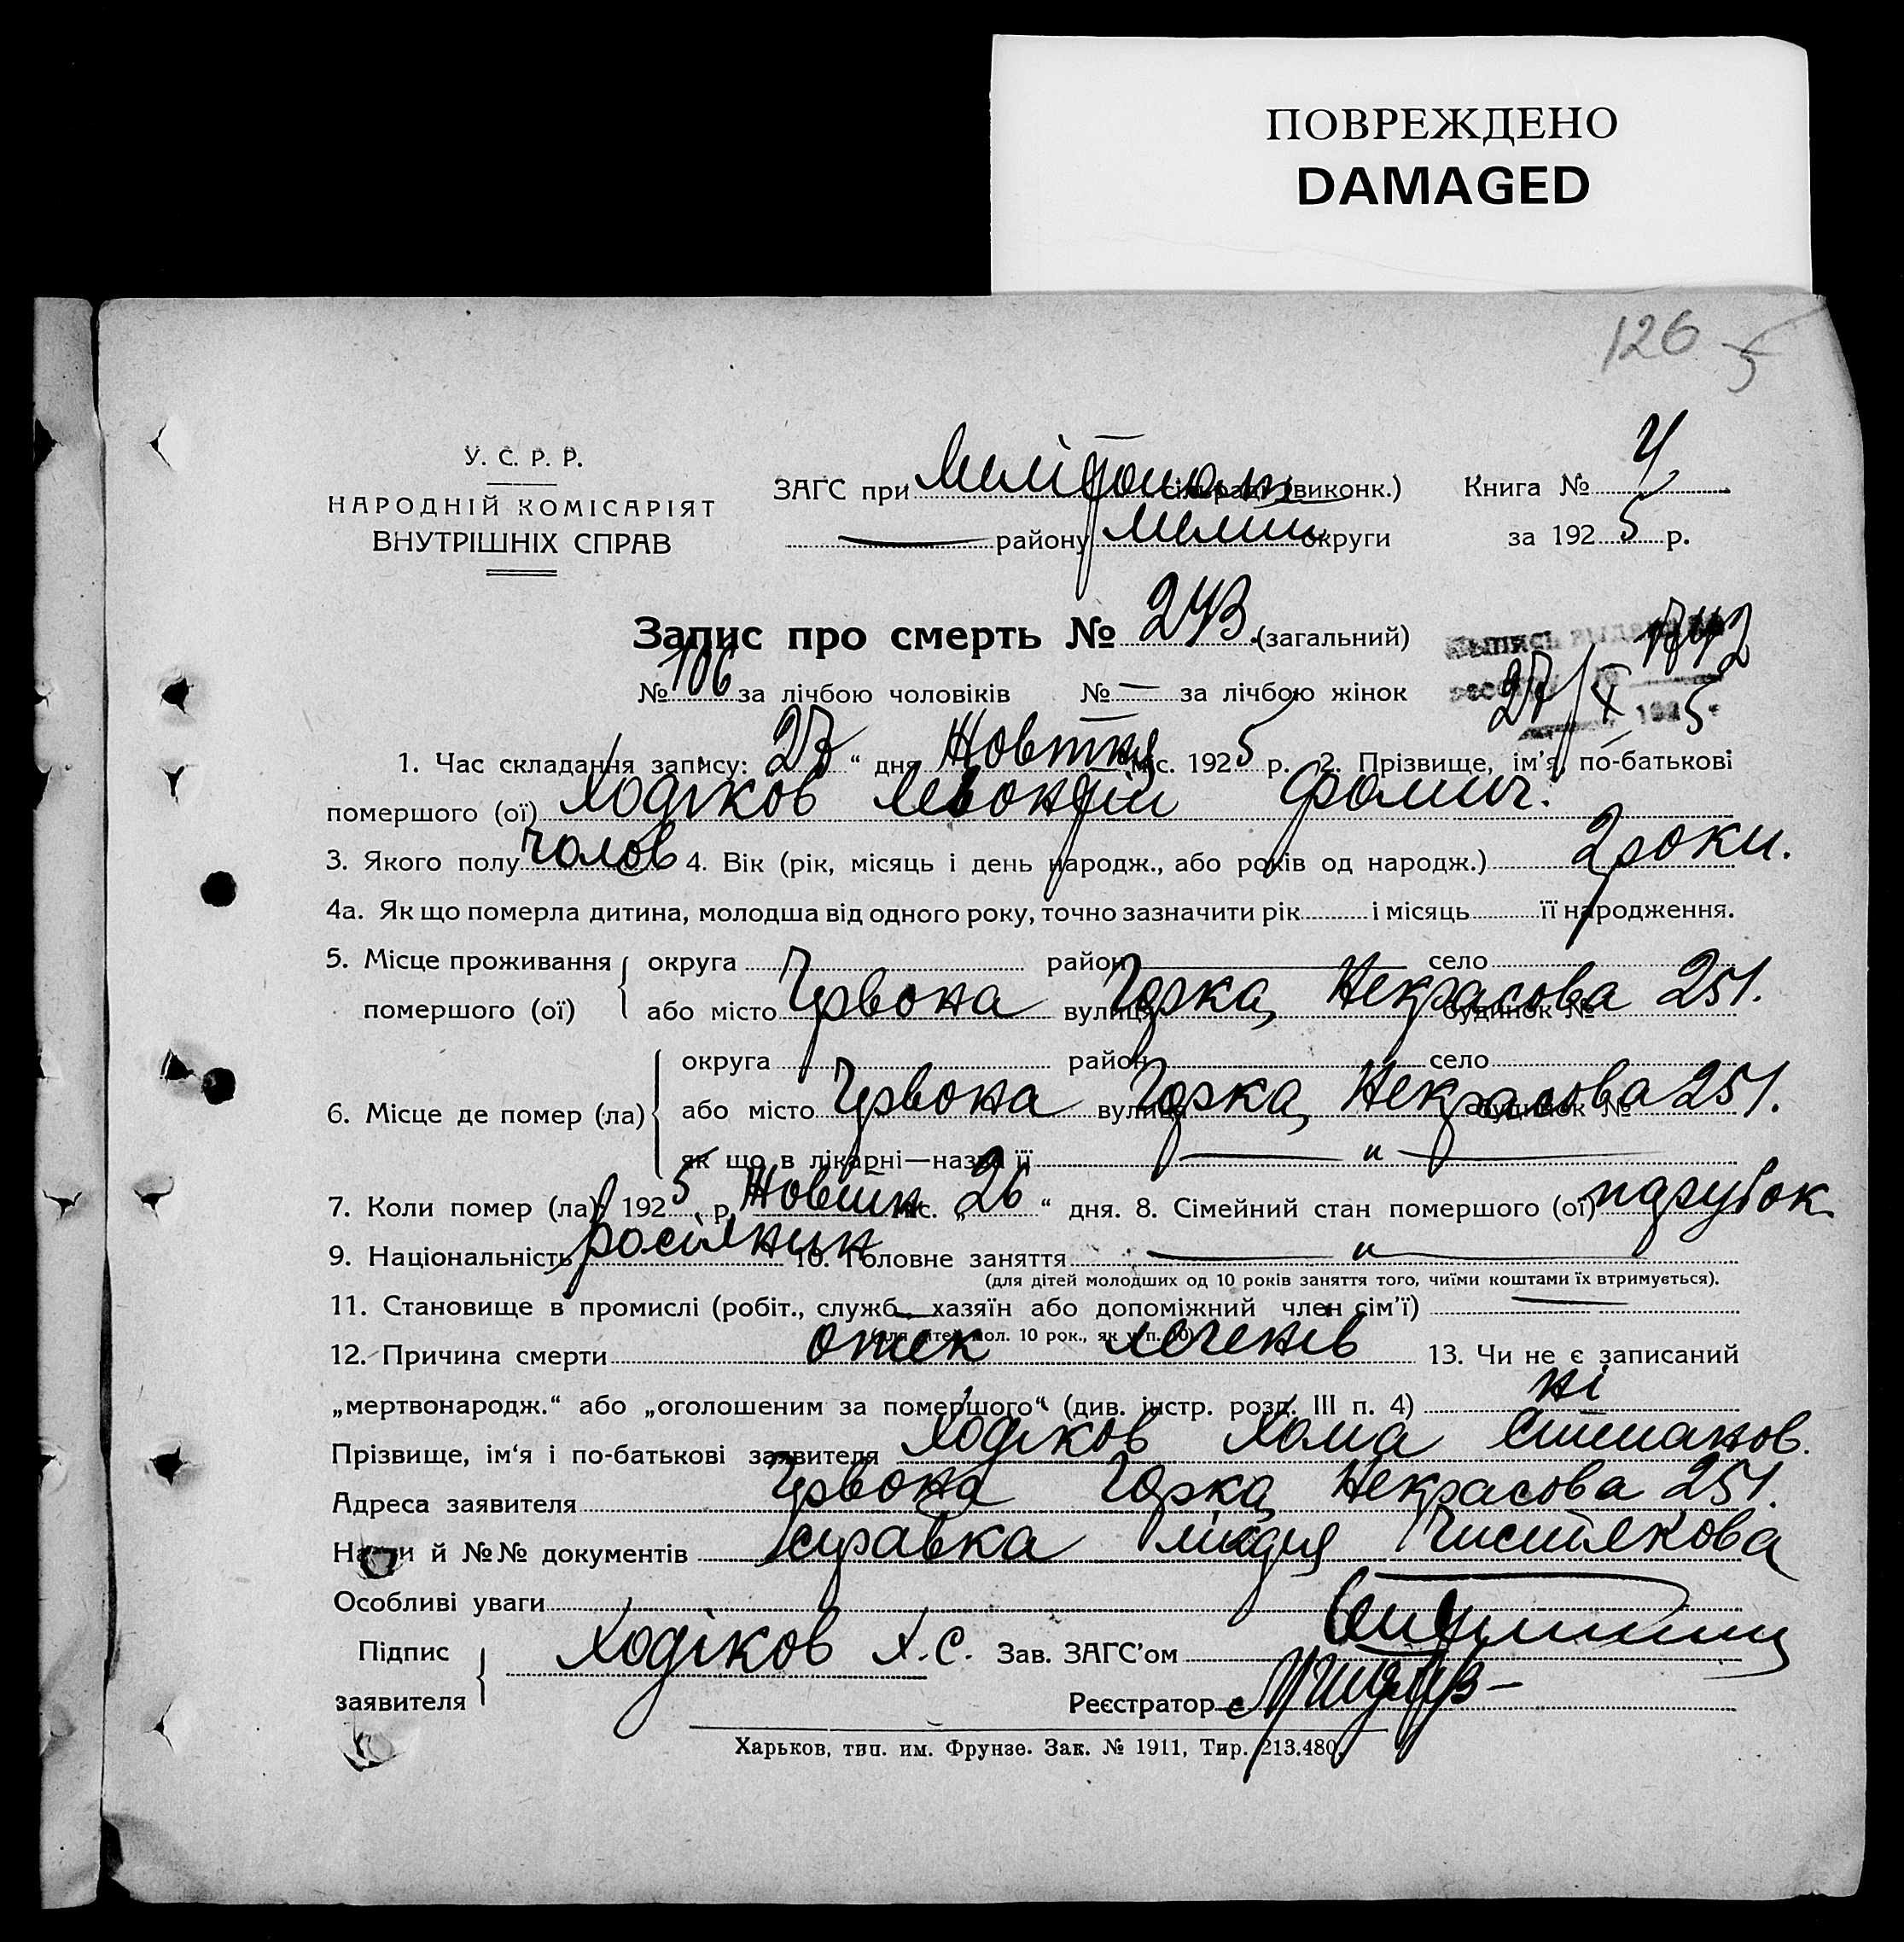 ПОВРЕЖДЕНО
DAMAGED
126
5
У. С. Р. Р.
НАРОДНІЙ КОМІСАРІЯТ
ВНУТРІШНІХ СПРАВ
ЗАГС при сільраді (виконк.) Книга № 4
району Мелит округи за 1925 р.
Запис про смерть № 243 (загальний)
№ 106 за лічбою чоловіків № — за лічбою жінок
1742
27/X 1925
1. Час складання запису: 27 “ дня Жовтня міс. 1925 р. 2. Прізвище, ім'я, по-батькові
помершого (ої) Ходіков Левонтій Фомич.
3. Якого полу чолов 4. Вік (рік, місяць і день народж., або років од народж.) 2 роки.
4а. Як що померла дитина, молодша від одного року, точно зазначити рік і місяць її народження.
5. Місце проживання помершого (ої) округа район село
або місто Червона вулиця Горка, Некрасова будинок № 251.
6. Місце де помер (ла) округа район село
або місто Червона вулиця Горка, Некрасова будинок № 251.
як що в лікарні—назва її — „ —
7. Коли помер (ла) 1925 р. Жовтн міс. „26“ дня. 8. Сімейний стан помершого (ої) парубок
9. Національність 10. Головне заняття — „ —
(для дітей молодших од 10 років заняття того, чиїми коштами їх втримується).
11. Становище в промислі (робіт., служб., хазяїн або допоміжний член сім'ї) —
(для дітей мол. 10 рок., як у п. 10)
12. Причина смерти отек легенів 13. Чи не є записаний
„мертвонародж.“ або „оголошеним за помершого“ (див. інстр. розд. III п. 4) ні
Прізвище, ім'я і по-батькові заявителя Ходіков Хома Степанов.
Адреса заявителя Червона Горка, Некрасова 251.
Назви й №№ документів справка лікаря Чистякова
Особливі уваги
Підпис заявителя Ходіков Х.С. Зав. ЗАГС'ом
Реєстратор
Харьков, тип. им. Фрунзе. Зак. № 1911, Тир. 213.480.